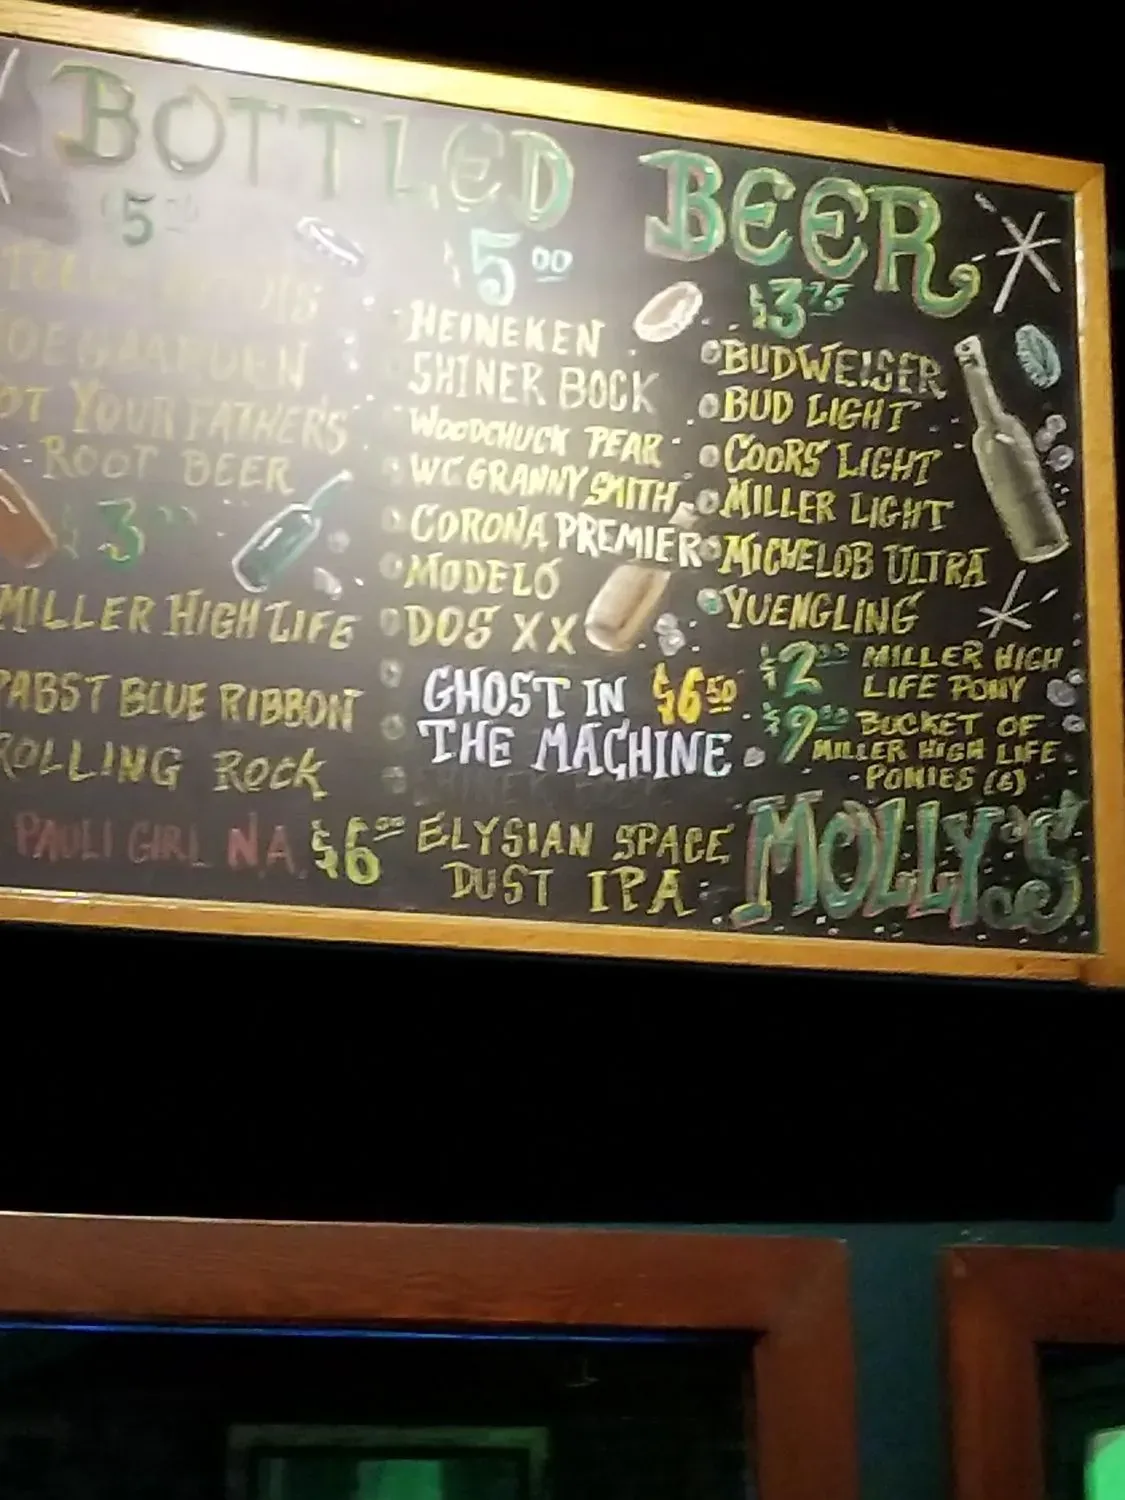 BOTTLED BEER
$5
ROOT BEER
$3
MILLER HIGH LIFE
PABST BLUE RIBBON
ROLLING ROCK
PAULI GIRL N.A.
$5.00
HEINEKEN
SHINER BOCK
WOODCHUCK PEAR
WC GRANNY SMITH
CORONA PREMIER
MODELO
DOS XX
GHOST IN $6.50
THE MACHINE
$6.00 ELYSIAN SPACE
DUST IPA
$3.75
BUDWEISER
BUD LIGHT
COORS LIGHT
MILLER LIGHT
MICHELOB ULTRA
YUENGLING
$2.00 MILLER HIGH
LIFE PONY
$9.00 BUCKET OF
MILLER HIGH LIFE
- PONIES (6) -
MOLLY'S